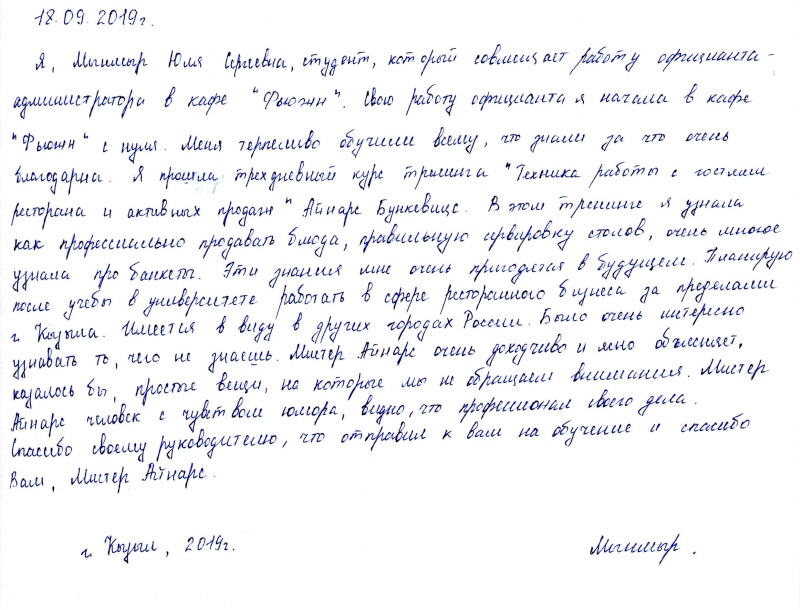 18.09.2019г.
Я, Мынмыр Юля Сергеевна, студент, который совмещает работу официанта-
администратора в кафе "Фьюжн". Свою работу официанта я начала в кафе
"Фьюжн" с нуля. Меня терпеливо обучили всему, что знали за что очень
благодарна. Я прошла трехдневный курс тренинга "Техника работы с гостями
ресторана и активных продаж" Айнарс Бункевицс. В этом тренинге я узнала
как профессиально продавать блюда, правильную сервировку столов, очень многое
узнала про банкеты. Эти знания мне очень пригодятся в будущем. Планирую
после учебы в университете работать в сфере ресторанного бизнеса за пределами
г. Кызыла. Имеется в виду в других городах России. Было очень интересно
узнавать то, чего не знаешь. Мистер Айнарс очень доходчиво и ясно объясняет,
казалось бы, простые вещи, на которые мы не обращаем внимания. Мистер
Айнарс человек с чувством юмора, видно, что профессионал своего дела.
Спасибо своему руководителю, что отправил к вам на обучение и спасибо
Вам, Мистер Айнарс.
г. Кызыл, 2019г. Мынмыр.